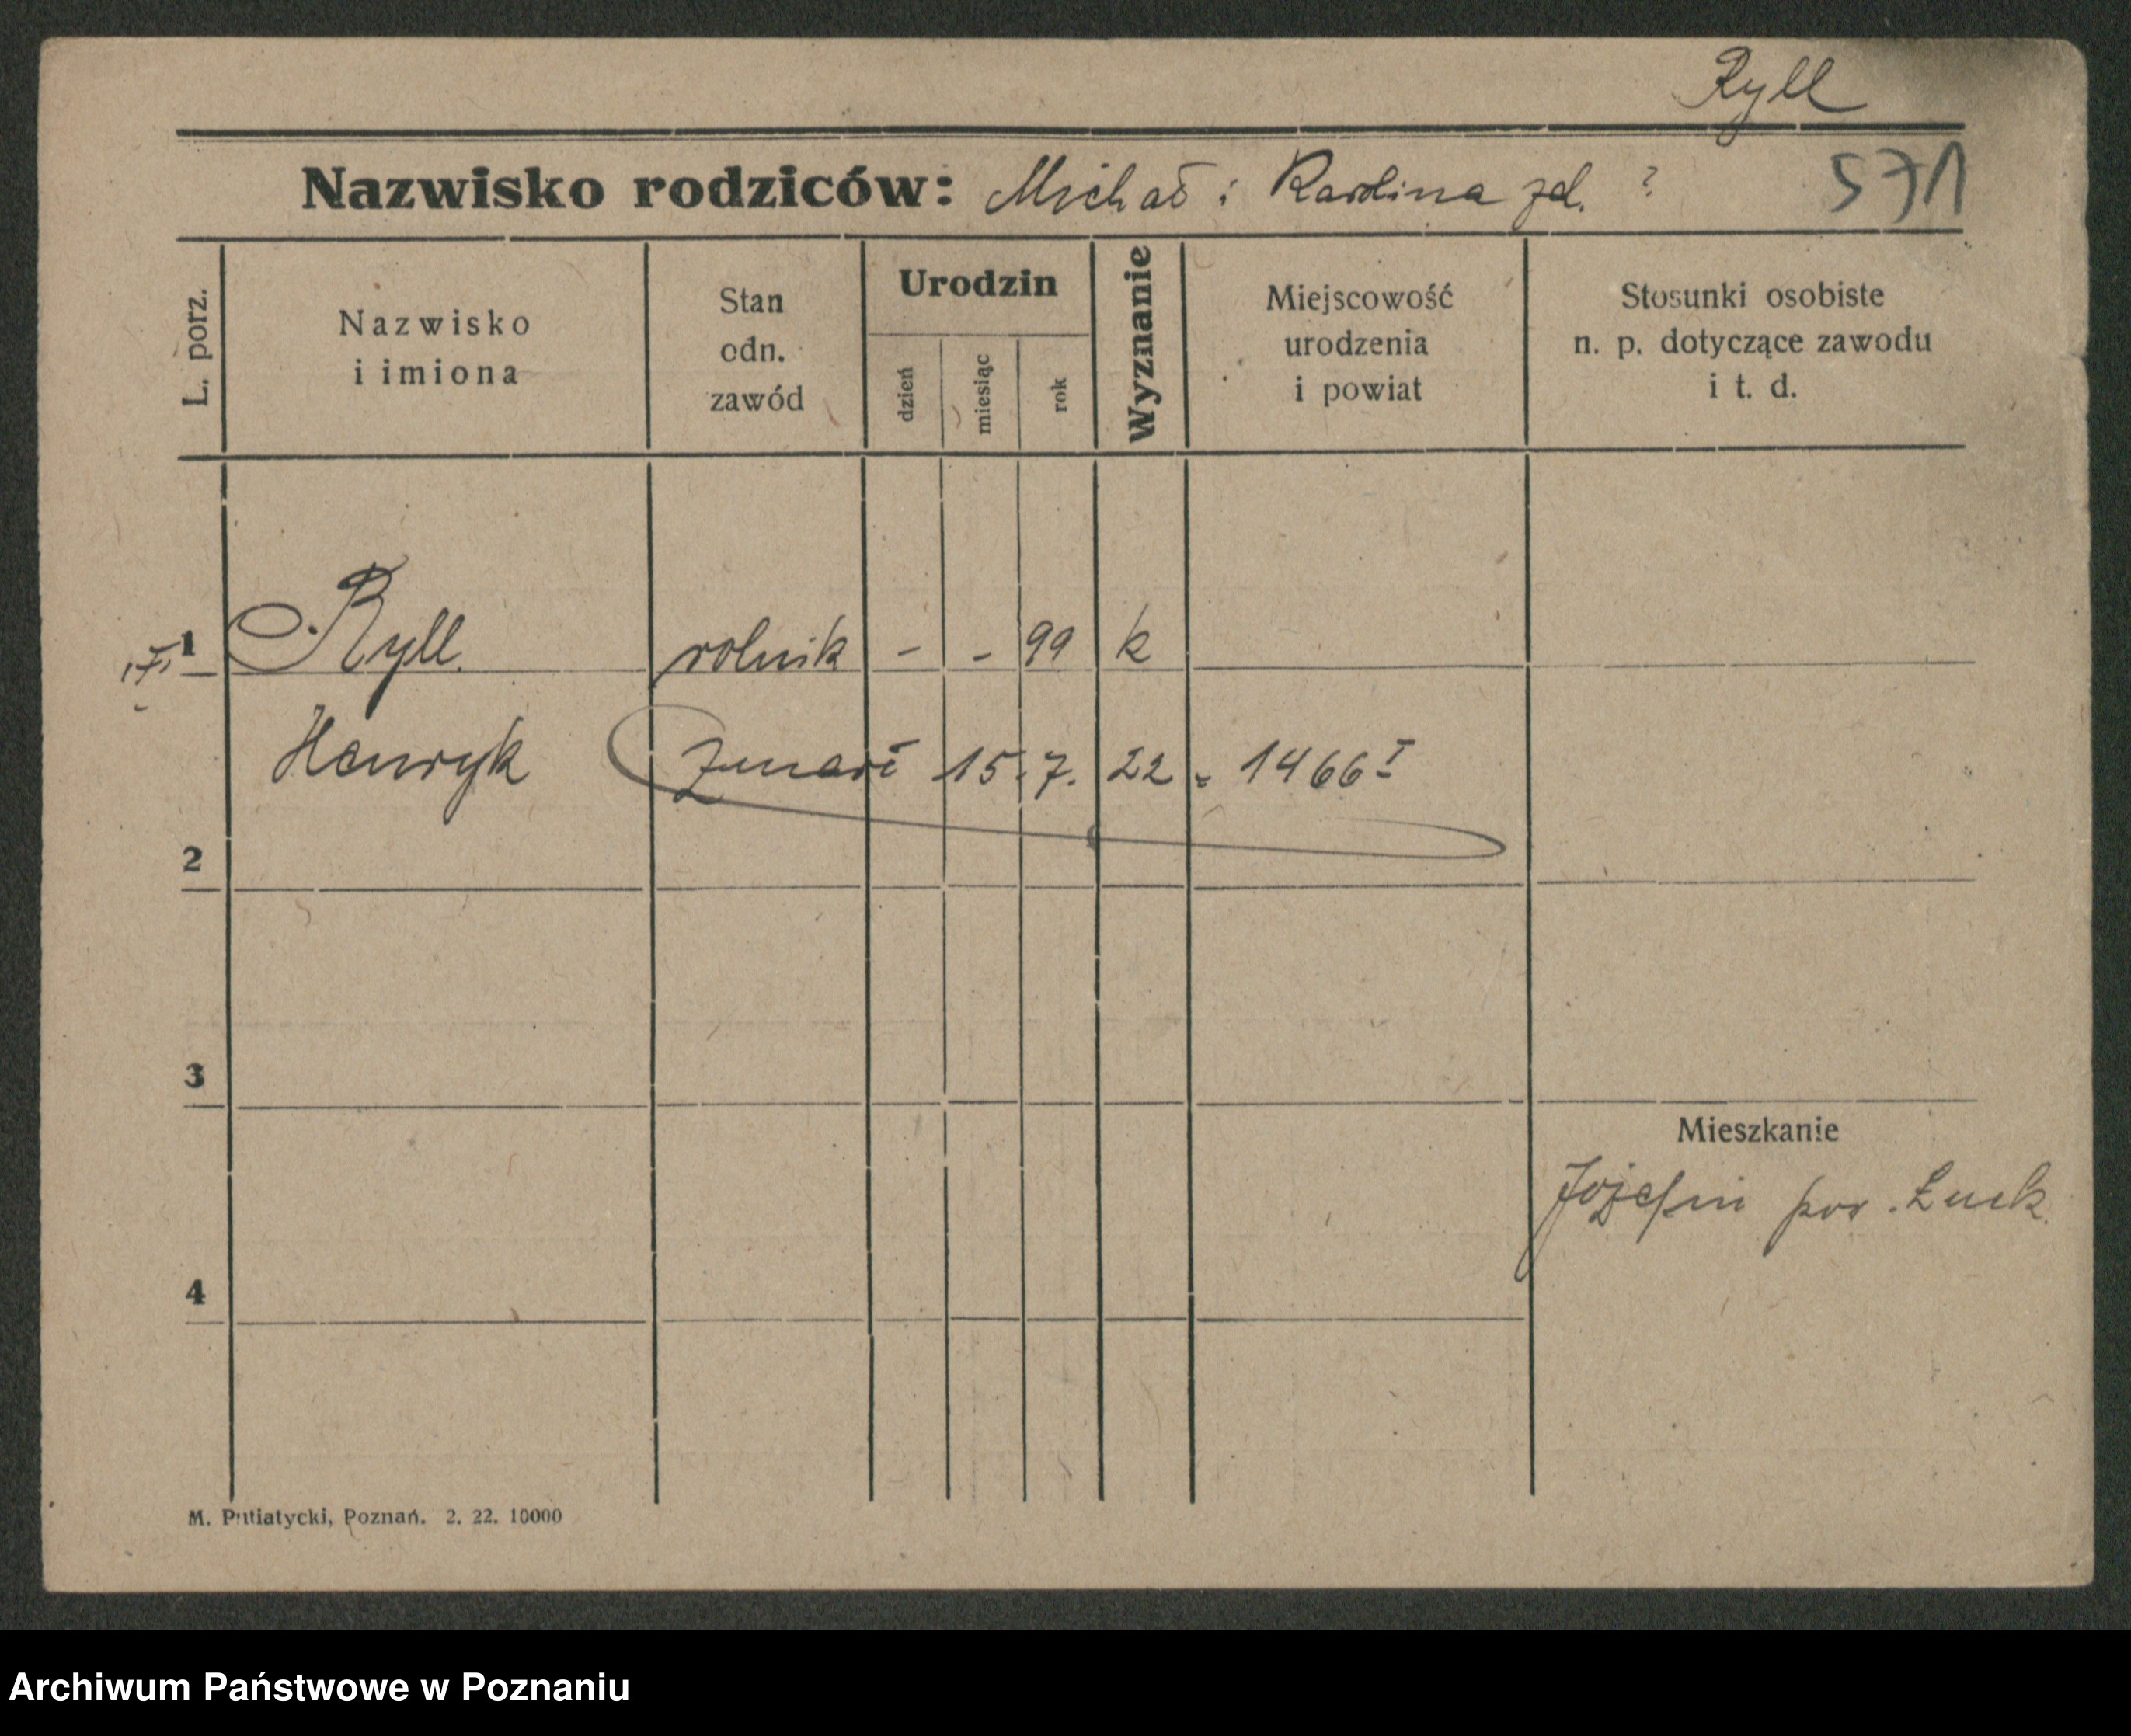 Ryll
Nazwisko rodziców: Michał i Karolina zd. ? 571
L. porz.
Nazwisko
i imiona
Stan
odn.
zawód
Urodzin
dzień
miesiąc
rok
Wyznanie
Miejscowość
urodzenia
i powiat
Stosunki osobiste
n. p. dotyczące zawodu
i t. d.
1 Ryll rolnik - - 99 k
Henryk Zmarł 15. 7. 22 1466 I
2
3
4
Mieszkanie
Józefin pow. Łuck
M. Putiatycki, Poznań. 2. 22. 10000
Archiwum Państwowe w Poznaniu